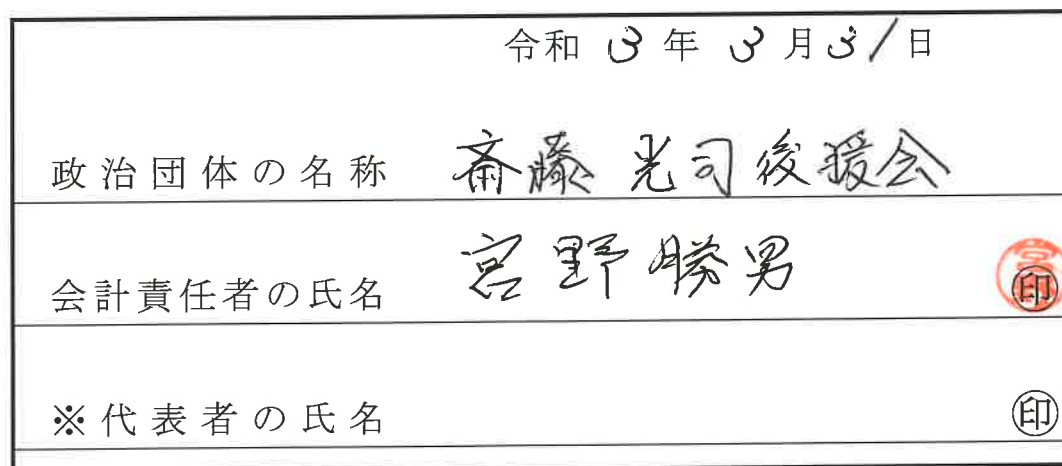 令和 3 年 3 月 31 日
政治団体の名称 斎藤光司後援会
会計責任者の氏名 宮野勝男 印
※代表者の氏名 印